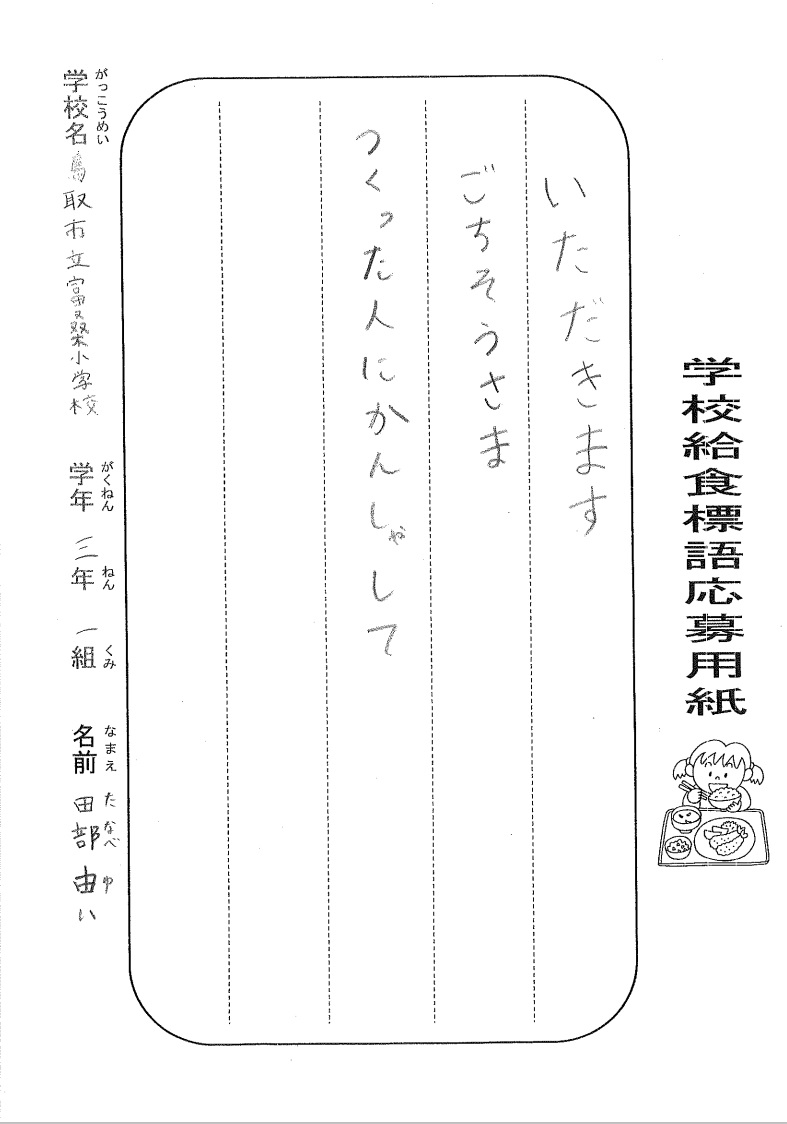 学校給食標語応募用紙
いただきます
ごちそうさま
つくった人にかんしゃして
がっこうめい
学校名 鳥取市立富桑小学校
がくねん ねん くみ
学年 三年 一組
なまえ たなべ ゆ
名前 田部 由い